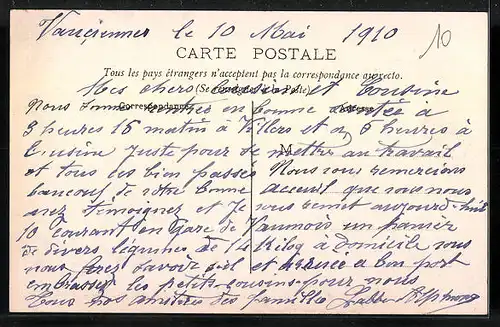 Vauciennes le 10 Mai 1910
10
CARTE POSTALE
Tous les pays étrangers n'acceptent pas la correspondance au recto.
(Se renseigner à la Poste)
Mes chers Cousin et Cousine
Correspondance
Nous sommes rentrés en bonne santée à
3 heures 16 matin à Villers et a 6 heures à
M
L'usine juste pour se mettre au travail
et tous les bien passés Nous vous remercions
beaucoup de votre bonne acceuil que vous nous
avez témoignez et Je vous remet aujourd'hui
10 courant en Gare de Vaumoise un panier
de divers légumes de 14 Kilog à domicile vous
nous ferez savoir s'il et arrivée à bon port
Embrasser les petits cousins pour nous
Tous nos amitiés des familles